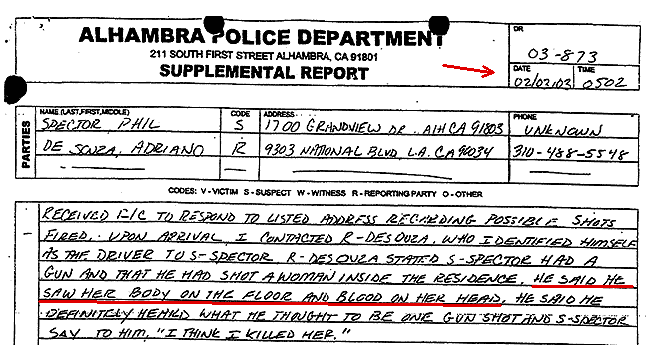 ALHAMBRA POLICE DEPARTMENT
211 SOUTH FIRST STREET ALHAMBRA, CA 91801
SUPPLEMENTAL REPORT
DR
03-873
DATE TIME
02/02/03 0502
PARTIES
NAME (LAST, FIRST, MIDDLE) CODE ADDRESS PHONE
SPECTOR, PHIL S 1700 GRANDVIEW DR. AlH CA 91803 UNKNOWN
DE SOUZA, ADRIANO R 9303 NATIONAL BLVD, L.A. CA 90034 310-488-5548
CODES: V - VICTIM S - SUSPECT W - WITNESS R - REPORTING PARTY O - OTHER
RECEIVED R/C TO RESPOND TO LISTED ADDRESS REGARDING POSSIBLE SHOTS
FIRED. UPON ARRIVAL, I CONTACTED R-DESOUZA, WHO IDENTIFIED HIMSELF
AS THE DRIVER TO S-SPECTOR R-DESOUZA STATED S-SPECTOR HAD A
GUN AND THAT HE HAD SHOT A WOMAN INSIDE THE RESIDENCE. HE SAID HE
SAW HER BODY ON THE FLOOR AND BLOOD ON HER HEAD. HE SAID HE
DEFINITELY HEARD WHAT HE THOUGHT TO BE ONE GUN SHOT AND S-SPECTOR
SAY TO HIM, "I THINK I KILLED HER."